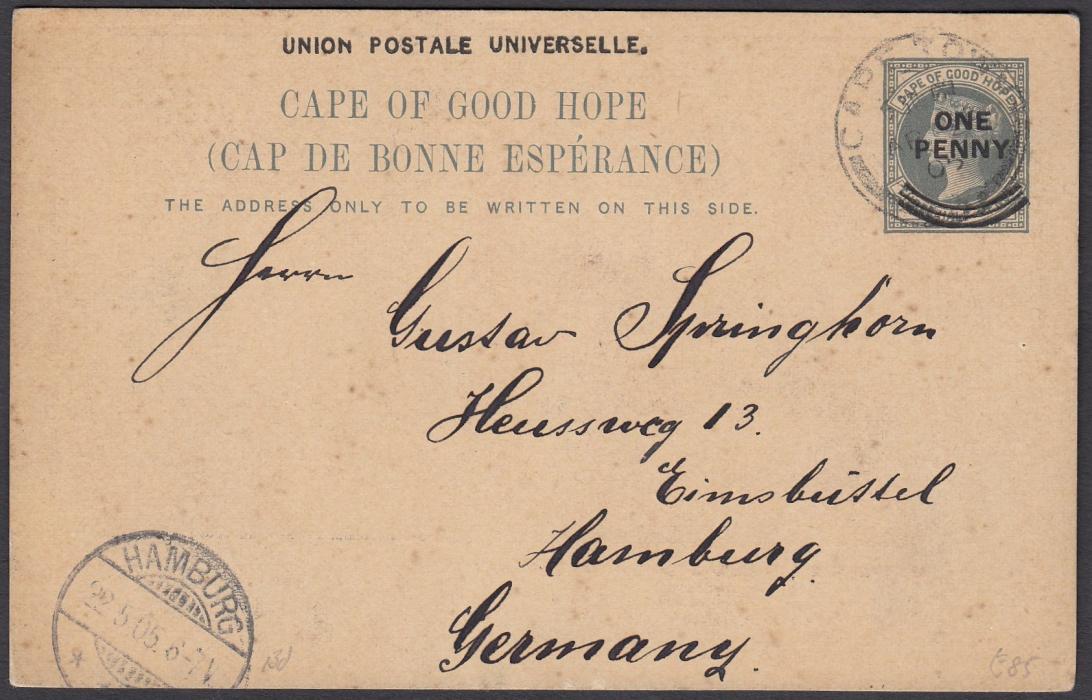 UNION POSTALE UNIVERSELLE.
CAPE OF GOOD HOPE
(CAP DE BONNE ESPÉRANCE)
THE ADDRESS ONLY TO BE WRITTEN ON THIS SIDE.
CAPE TOWN
CAPE OF GOOD HOPE
ONE
PENNY
Herrn
Gustav Springhorn
Heussweg 13.
Eimsbüttel
Hamburg
Germany.
HAMBURG
22.5.05. 6-7
*
£85